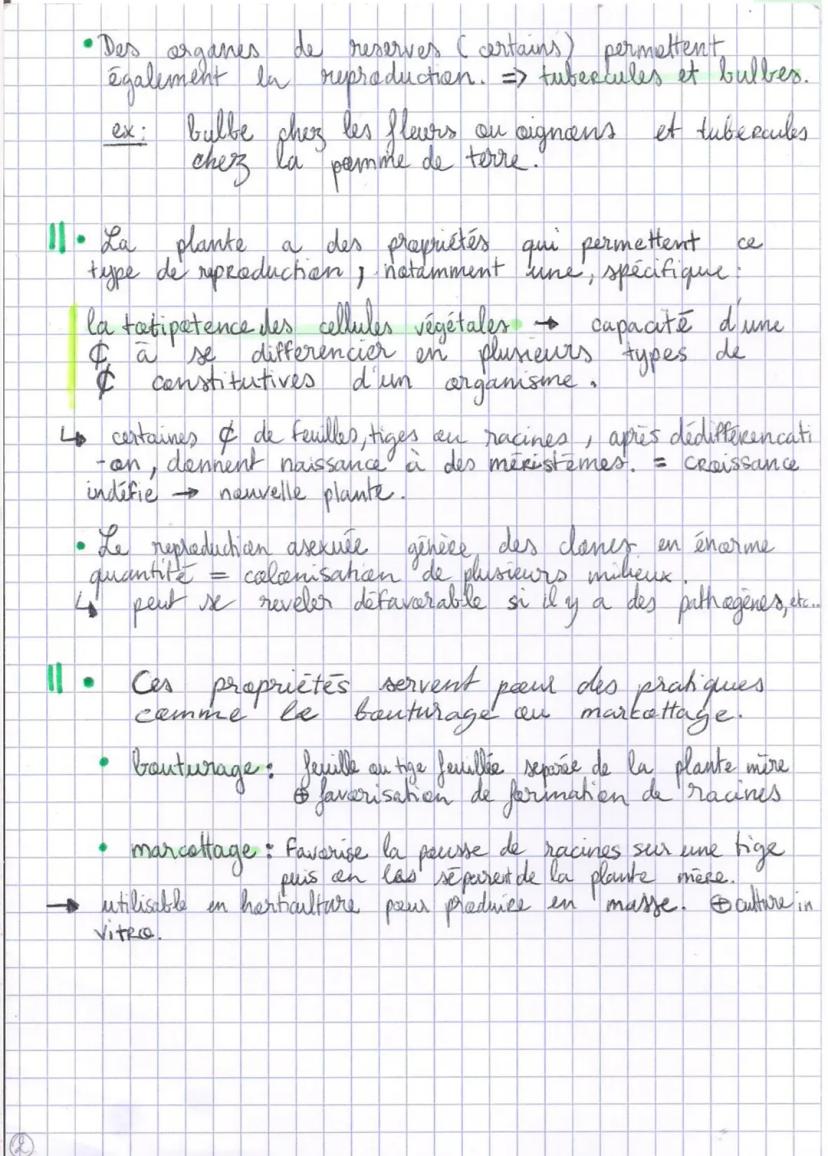 • Des organes de reserves (certains) permettent
également la reproduction. => tubercules et bulbes.
ex: bulbe chez les fleurs ou oignons et tubercules
chez la pomme de terre.
II • La plante a des propriétés qui permettent ce
type de reproduction, notamment une, spécifique:
la totipotence des cellules végétales → capacité d'une
₵ à se differencier en plusieurs types de
₵ constitutives d'un organisme.
↳ certaines ₵ de feuilles, tiges ou racines, après dédifférencati
-on, donnent naissance à des méristèmes. = croissance
indéfie → nouvelle plante.
• Le reproduction asexuée génère des clones en énorme
quantité = colonisation de plusieurs milieux.
↳ peut se reveler défavorable si il y a des pathogènes, etc...
II • Ces propriétés servent pour des pratiques
comme le bouturage ou marcottage.
• bouturage: feuille ou tige feuillée separée de la plante mère
⊕ favorisation de formation de racines
• marcottage: Favorise la pousse de racines sur une tige
puis on les séparent de la plante mère.
→ utilisable en horticulture pour produire en masse. ⊕ culture in
vitro.
2